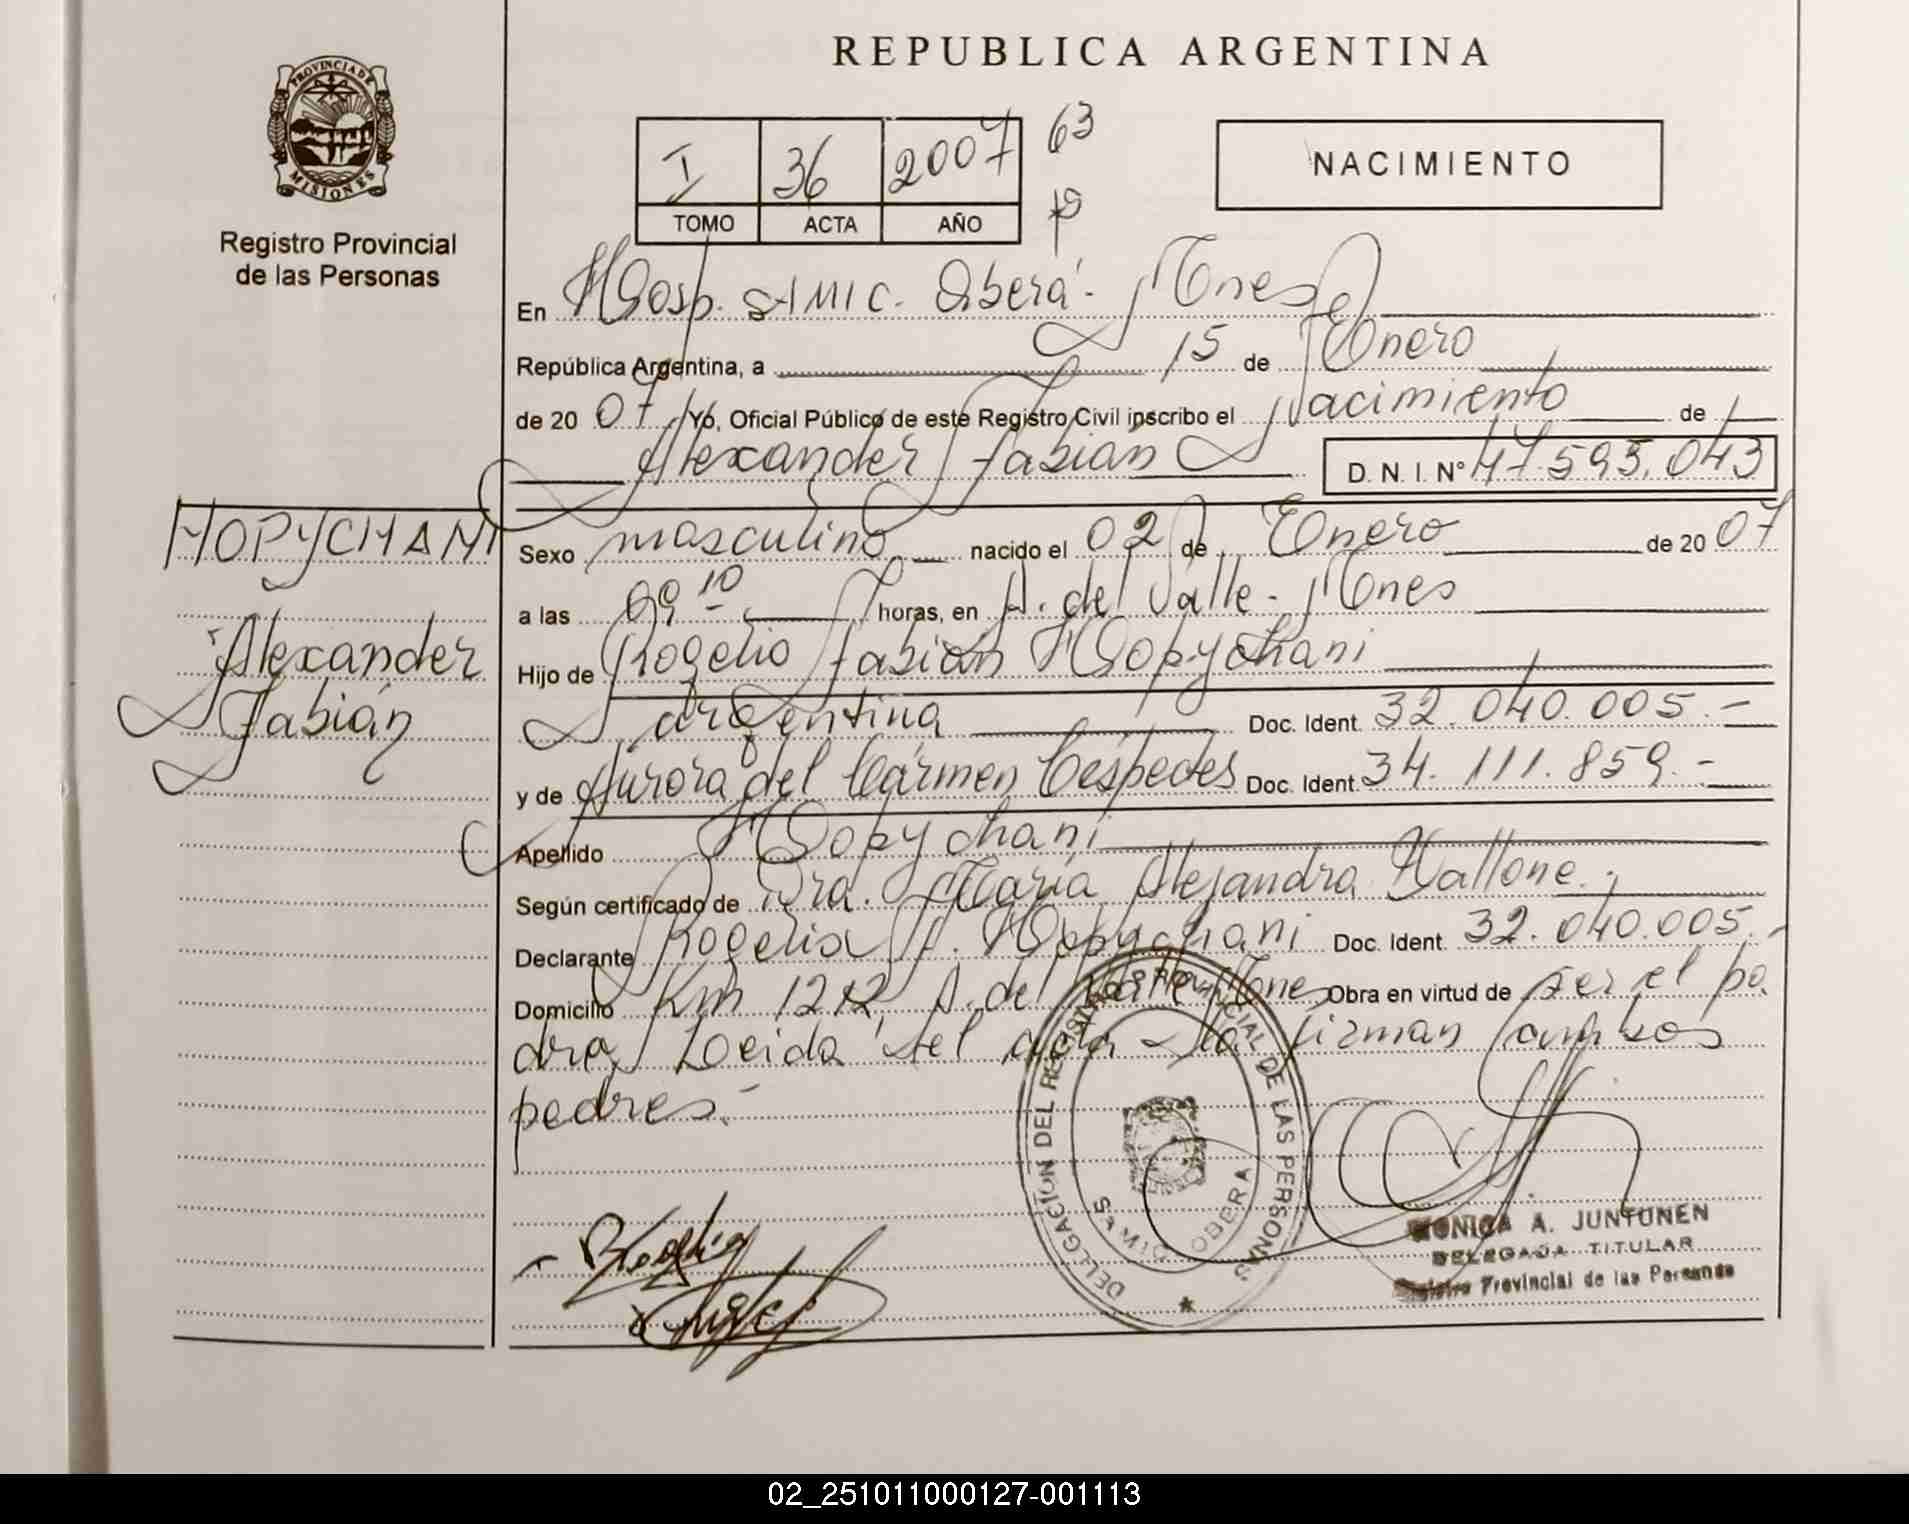 REPUBLICA ARGENTINA
PROVINCIA DE
MISIONES
Registro Provincial
de las Personas
I 36 2007 63
TOMO ACTA AÑO
NACIMIENTO
En Hosp. SAMIC. Oberá- Mnes
República Argentina, a 15 de Enero
de 20 07 Yo, Oficial Público de este Registro Civil inscribo el Nacimiento de
Alexander Fabián D. N. I. N° 47.593.043
HOPYCHANI
Sexo masculino nacido el 02 de Enero de 20 07
a las 09 10 horas, en A. del Valle- Mnes
Alexander
Fabián
Hijo de Rogelio Fabián Hopychani
argentina Doc. Ident. 32.040.005.-
y de Aurora del Cármen Céspedes Doc. Ident. 34.111.859.-
Apellido Hopychani
Según certificado de Dra. María Alejandra Vallone.;
Declarante Rogelio F. Hopychani Doc. Ident. 32.040.005.-
Domicilio Km 1212, A. del Valle Mnes Obra en virtud de ser el pa
dre, Leida el acta la firman ambos
padres.-
DELEGACIÓN DEL REGISTRO PROVINCIAL DE LAS PERSONAS
OBERA
MONICA A. JUNTUNEN
DELEGADA TITULAR
Registro Provincial de las Personas
02_251011000127-001113